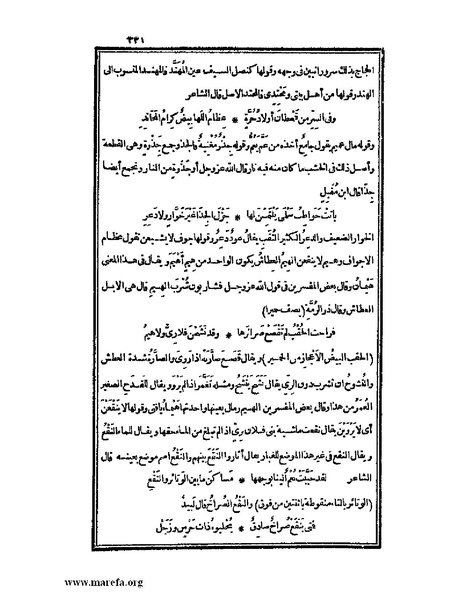 ٣٣١
الحجاج بذلك سرورا تبين فى وجهه وقولها كنصل السيف عين المُهَنَّد فالمهند المنسوب الى
الهند وقولها من أهل بيتى ومحتدى فالمحتد الاصل قال الشاعر
وفى السِرِّ من قحطان أولاد حُرَّة * عظام اللها بيضٌ كرام المحاتد
وقوله مال عميم يقول جامعٌ أخذه من عَمَّ يعمُّ وقوله جِذْوٌ مُغْنِيَةٌ فالجذا وجمع جذوة وهى القطعة
وأصل ذلك فى الخشب ما كان منه فيه نار قال الله عز وجل أو جذوة من النار وتجمع أيضا
جِذًا قال ابن مُقبِل
باتت حواطبُ سَلْمى يلتمسن لها * جَزْلَ الجِذا غيرَ خوّارٍ ولا دَعِر
الخوار الضعيف والدعر الكثير الثقب يقال عودٌ دَعِرٌ وقولها جوف لا يشبعن تقول عظام
الاجواف وهيم لا ينقعن الهيم العطاش يكون الواحد من هيم أَهْيَم ويقال فى هذا المعنى
هَيْمان وقال بعض المفسرين فى قول الله عز وجل فشاربون شُرْبَ الهيم قال هى الابل
العطاش وقال ذو الرُمَّة (يصف حميرا)
فراحت الحُقْبُ لم تَقْصَع صرائرها * وقد نَشَحْنَ فلا رِىٌّ ولا هِيمُ
(الحقب البيض الاعجاز من الحمير) ويقال قَصَعَ صارّته اذا رَوِى والصارّة شدة العطش
والنُشوح ان تشرب دون الرِىّ يقال نَشَحَ يَنْشَحُ ومثله تَغَمَّر اذا لم يَرْوَ ويقال للقدح الصغير
الغُمَر من هذا وقال بعض المفسرين الهيم رمال بعينها واحدتها هَيام يا فتى وقولها لا يَنْقَعْنَ
أى لا يَرْوَيْنَ يقال نقعت ماشية بنى فلان برىّ اذا لم تبلغ من الماء حقها ويقال للماء النَقْع
ويقال النقع فى غير هذا الموضع للغبار يقال أثاروا النَقْع بينهم والنَقْع اسم موضع بعينه قال
الشاعر لقد حَبَّبَت نُعْمٌ الينا بوجهها * مساكنَ ما بين الوَتائر والنَقْع
(الوتائر بالتاء منقوطة باثنتين من فوق) والنَقْع الصُراخ قال لبيد
فمتى يَنْقَعْ صُراخٌ صادقٌ * يُحْلِبوه ذاتَ جَرْسٍ وزَجَل
www.marefa.org